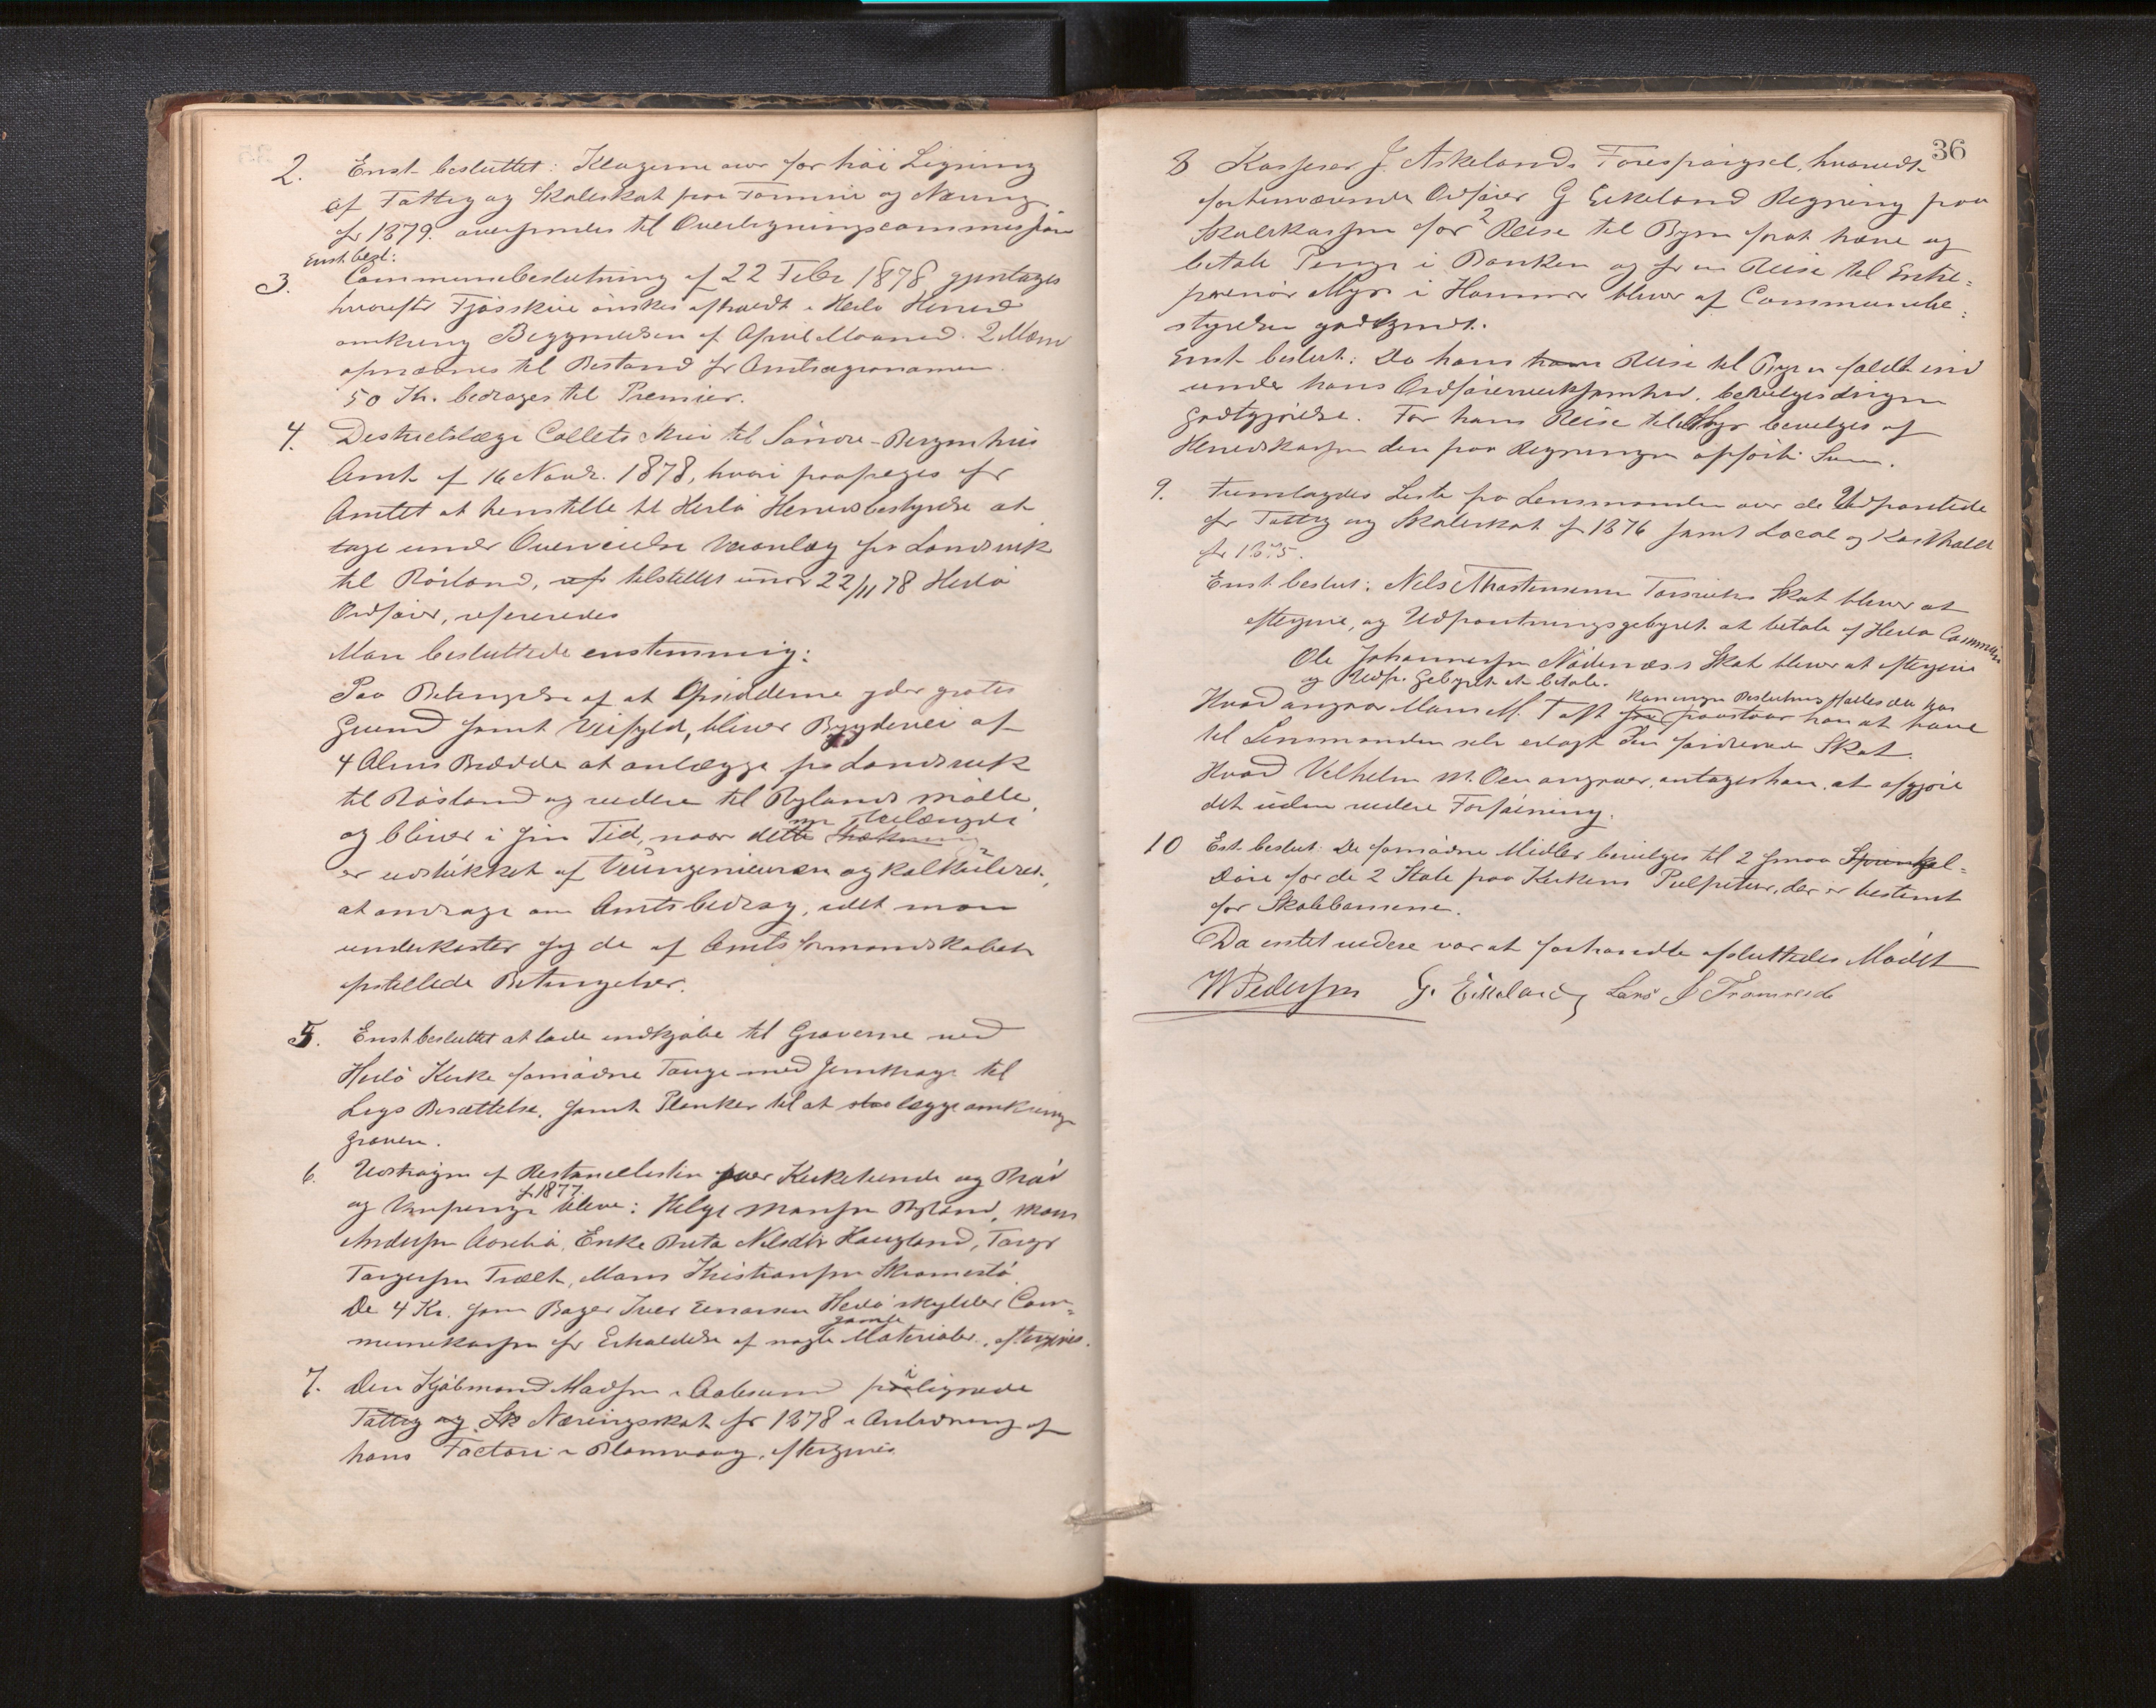 2. Enst. besluttet: Klagerne over for høi Ligning
af Fattig og Skoleskat paa Formue og Næring
for 1879. oversendes til Overligningscommission
Enst besl:
3. Communebeslutning af 22 Febr 1878 gjentages
hvorefter Fjøsskue ønskes afholdt i Herlø Herred
omkring Begyndelsen af April Maaned. 2 Mænd
opnævnes til Bistand for Amtsagronomen.
50 Kr. bedrages til Premier.
4. Destrictslæge Collets Skriv til Søndre-Bergenhus
Amt af 16 Novbr. 1878, hvori
Amtet at henstille til Herlø Herredsbestyrelse at
tage under Overveielse Veianlæg fra Landsvik
til Røsland, tilstillet under 22/11 78 Herlø
Ordfører, refereredes
Man besluttede enstemmig:
Paa Betingelse af at Opsidderne yder gratis
Grund samt Veifyld, bliver Bygdevei af
4 Alens Bredde at anlægge fra Landsvik
til Røsland og videre til Rylands Mølle,
og bliver i sin Tid, naar dette
er udstukket af Veiingenieuren og kalkuleret,
at andrage om Amtsbedrag, idet man
underkaster sig de af Amtsformandskabet
opstillede Betingelser.
5. Enst besluttet at lade indkjøbe til Graverne ved
Herlø Kirke fornødne Tauge med Jernkroge til
Ligs Nedsættelse, samt Planker til at lægge omkring
Graven.
6. Udstrøgne af Restancelisten over Kirketiende og
for 1877.
og bleve: Helge Monsen Ryland, Mons
Andersen, Enke Brita Nilsdtr Haugland, Torger
Torgersen Træet, Mons Kristiansen Skramestø.
De 4 Kr. som Bager Iver Einarsen Herlø skylder Com-
gamle
munekassen for Erholdelse af nogle Materialer, eftergives.
7. Den Kjøbmand Madsen i Aalesund ilignede
Fattig og Sk Næringsskat for 1878 i Anledning af
hans Factori i Blomvaag, eftergives.
36
8 Kasserer J. Askelands Forespørgsel, hvorvidt
forhenværende Ordfører G Eikeland Regning paa
Skolekassen for 2 Reise til Byen forat hæve og
betale Penge i Banken og for en Reise til Entre-
prenør Myr i Hammer bliver af Communebe-
styrelsen godkjendt.
Enst beslut: Da hans Reise til Byen faldt ind
under hans Ordførervirksomhed, bevilges dertil ingen
Godtgjørelse. For hans Reise til Myr bevilges af
Herredskassen den paa Regningen opførte Sum.
9. Fremlagdes Liste fra Lensmanden over de Udpantede
for Fattig og Skoleskat for 1876 samt Local og Kosthold
for 1875.
Enst. beslut: Nils Torsviks Skat bliver at
eftergive, og Udpantningsgebyret at betale af Herlø Commun
Ole Johannessen Nødenæs's Skat bliver at eftergive
og Udp. Gebyret at betale.
kan ingen Beslutning fattes da han
Hvad angaar Mons M. Toft paastaar han at have
til Lensmanden selv erlagt den fordrede Skat.
Hvad Vilhelm M. Oen angaaer, antages han at afgjøre
det uden videre Forføining.
10 Est. beslut: De fornødne Midler bevilges til 2 smaa
Døre for de 2 Stole paa Kirkens Pulpitur, der er bestemt
for Skolebørnene.
Da intet videre var at forhandle afsluttedes Mødet
W Pedersen G. Eikeland Lars J Framnæs